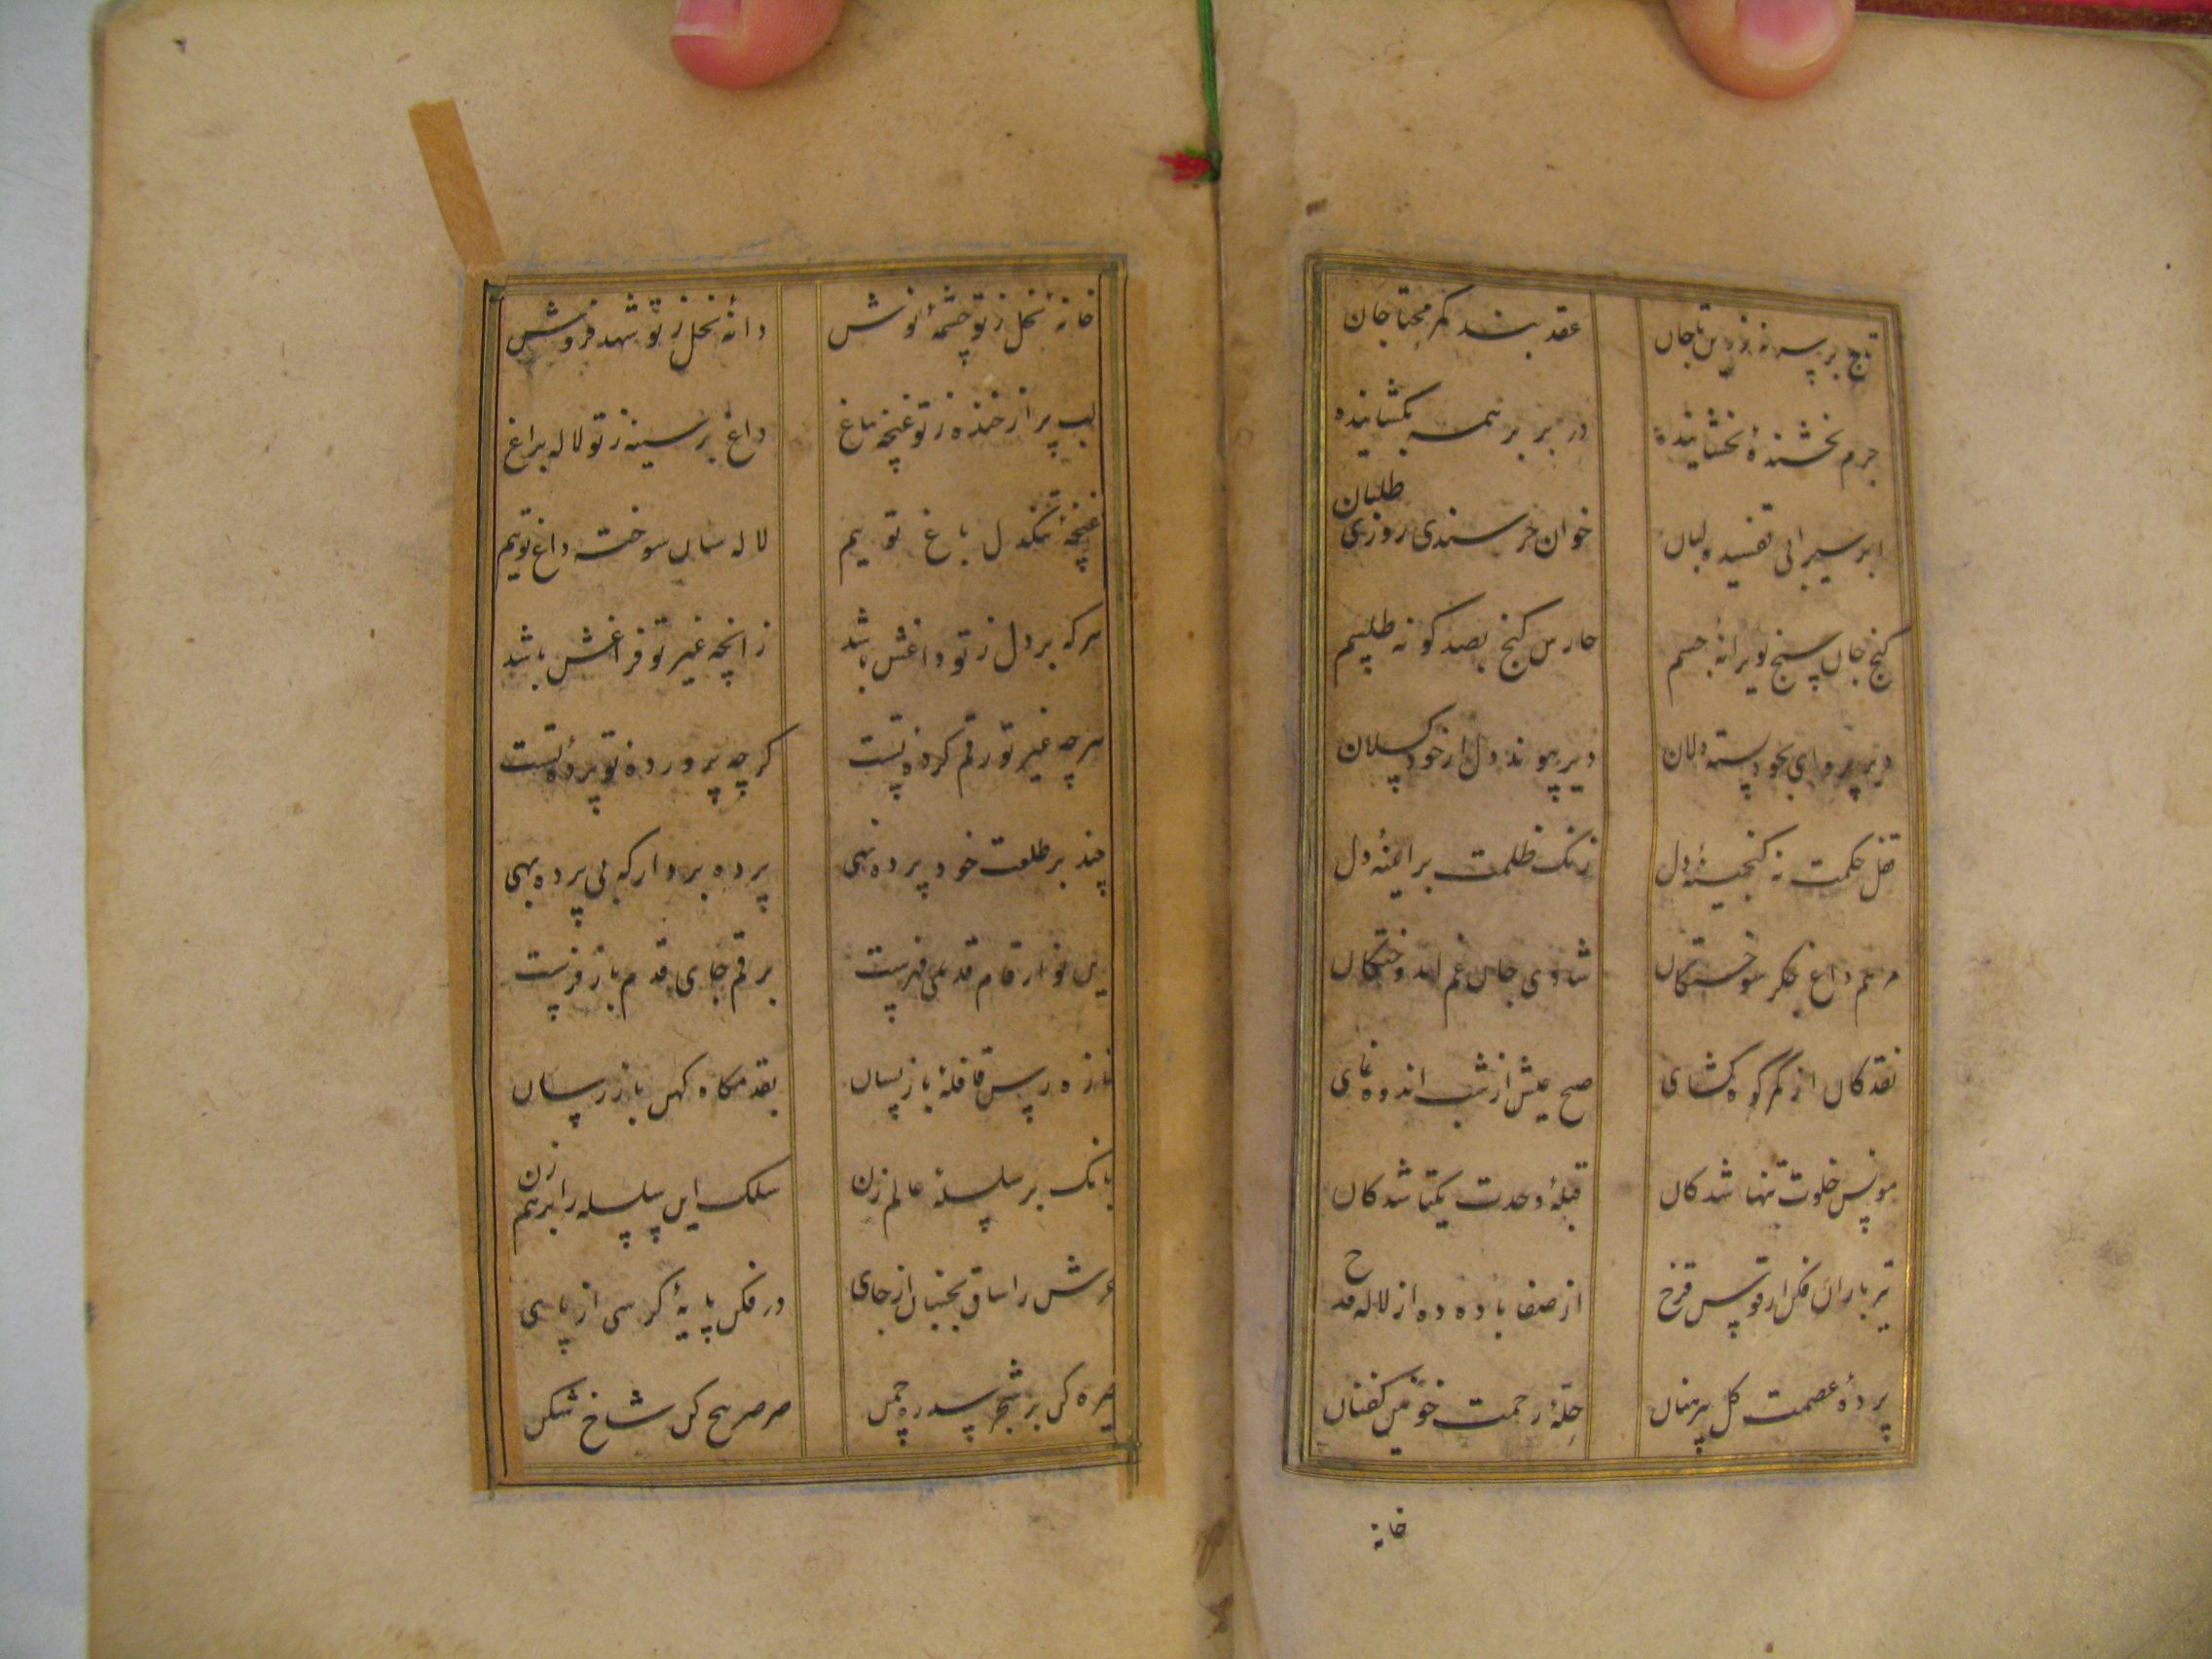 تاج بر سر نه زرین تاجان عقد بند کمر محتاجان
جرم بخشندهٔ بخشاینده در بر بر همه بگشاینده
ابر سیرابی تفسیده لبان خوان خرسندی روزی طلبان
گنج جان سنج بویرانهٔ جسم حارس گنج بصد گونه طلسم
دیر پروای بخود بسته دلان دیر پیوند دل از خود گسلان
قفل حکمت نه گنجینهٔ دل زنگ ظلمت بر آیینهٔ دل
مرهم داغ جگر سوختگان شادی جان غم اندوختگان
نقد کان از کمر کوه گشای صبح عیش از شب اندوه نمای
مونس خلوت تنها شدگان قبلهٔ وحدت یکتا شدگان
تیر باران فکن از قوس قزح از صفا باده ده از لاله قدح
پردهٔ عصمت گل پیرهنان حلهٔ رحمت خونین کفنان
خانه
خانهٔ نحل ز تو چشمهٔ نوش دانهٔ نخل ز تو شهد فروش
لب پر از خنده ز تو غنچه بباغ داغ بر سینه ز تو لاله براغ
غنچهٔ تنگدل باغ توییم لاله سان سوخته داغ توییم
هر که بر دل ز تو داغش باشد زانچه غیر تو فراغش باشد
هر چه غیر تو رقم کرده تست گر چه پرورده تو پردهٔ تست
چند بر طلعت خود پرده نهی پرده بردار که بی پرده بهی
بر قم جای قدم باز فرست
تازه رس قافلهٔ بازپسان بقدمگاه کهن باز رسان
بانگ بر سلسلهٔ عالم زن سلک این سلسله را برهم زن
عرش را ساق بجنبان از جای در فکن پایهٔ کرسی از پای
بر شجر سدره چمن صرصر هیج کن شاخ شکن